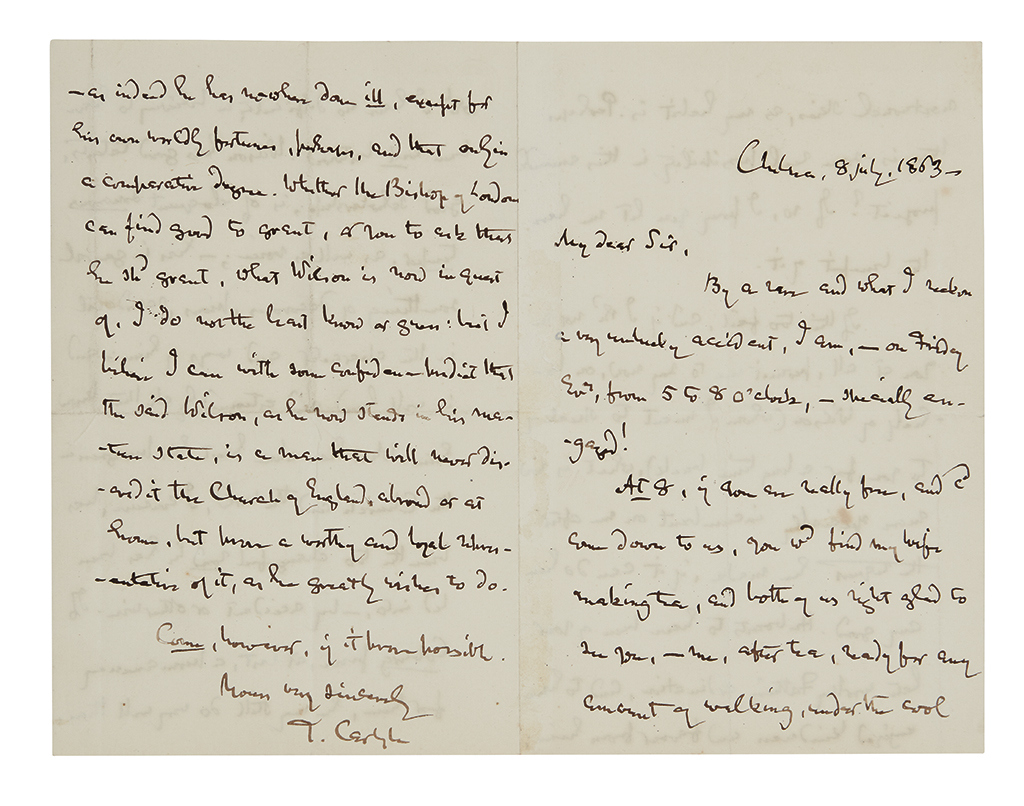 Chelsea, 8 july, 1863 —
My dear Sir,
By a rare and what I reckon
a very unlucky accident, I am, — on Friday
Evg, from 5 to 8 o'clock, — specially en-
-gaged!
At 8, if you are really free, and cd
come down to us, you wd find my wife
making tea, and both of us right glad to
see you, — me, after tea, ready for any
amount of walking, under the cool
— as indeed he has nowhere done ill, except for
his own worldly fortunes, perhaps, and that only in
a comparative degree. Whether the Bishop of London
can find good to grant, or you to ask that
he shd grant, what Wilson is now in quest
of, I do not the least know or guess: but I
believe I can with some confidence predict that
the said Wilson, as he now stands in his ma-
-ture state, is a man that will never dis-
-credit the Church of England, abroad or at
home, but prove a worthy and loyal repres-
-entative of it, as he greatly wishes to do.
Come, however, if it prove possible.
Yours very sincerely
T. Carlyle